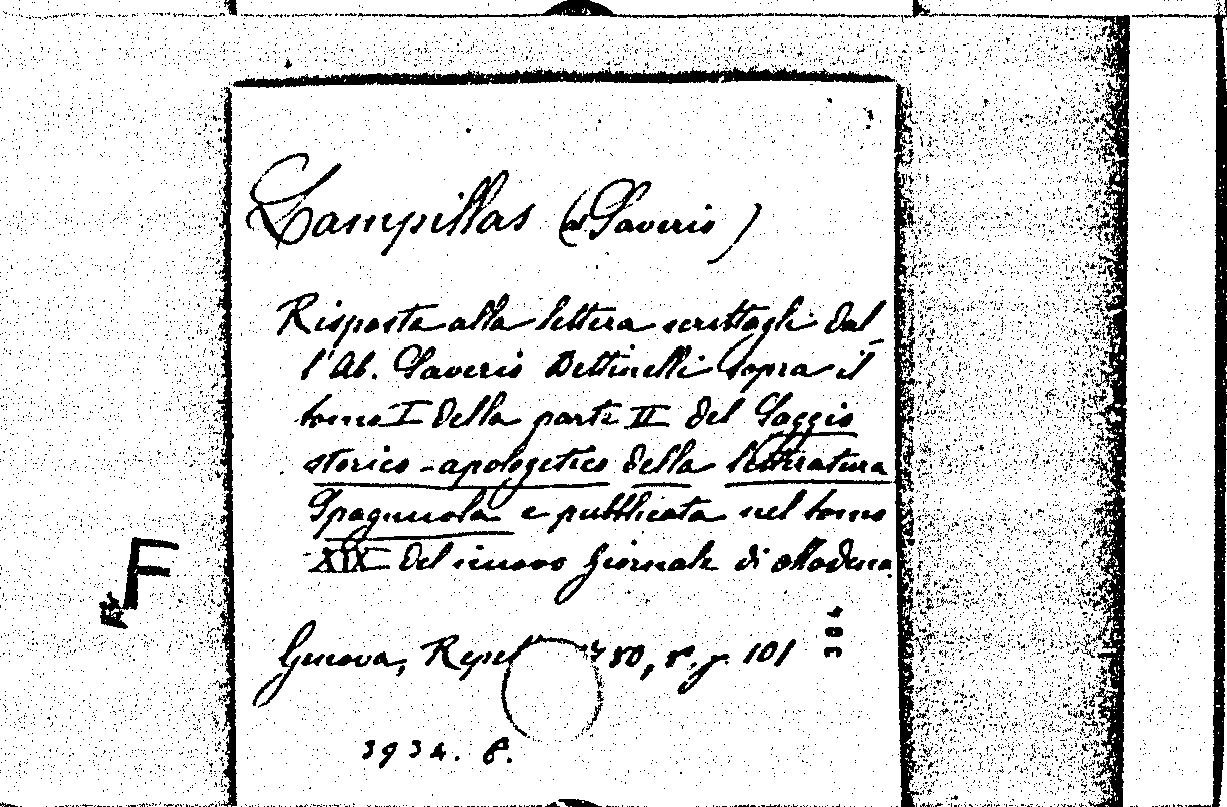 Lampillas (ab Saverio)
Risposta alla lettera scrittagli dal
l'Ab. Saverio Bettinelli sopra il
tomo I della parte II del Saggio
storico-apologetico della letteratura
Spagnuola e pubblicata nel tomo
XIX del nuovo Giornale di Modena.
Genova, Repet 780, 8. p. 101
3934. 8.
F